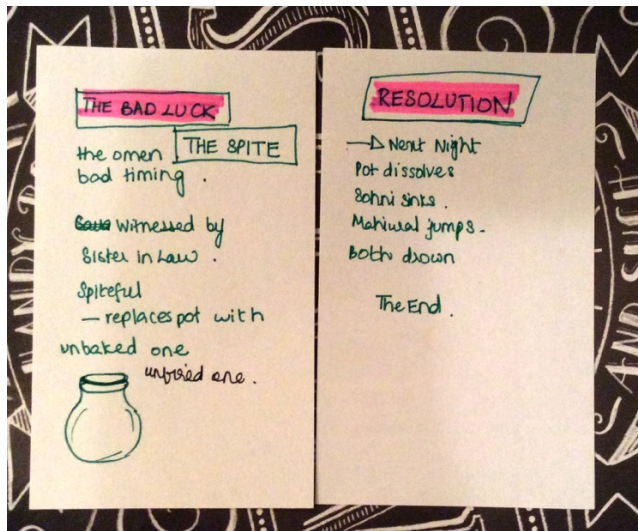 THE BAD LUCK
THE SPITE
the omen
bad timing .
witnessed by
Sister in Law .
Spiteful
— replaces pot with
unbaked one
unfired one .
RESOLUTION
→ Next Night
Pot dissolves
Sohni sinks .
Mahiwal jumps .
Both drown
The End .
AND SUCH